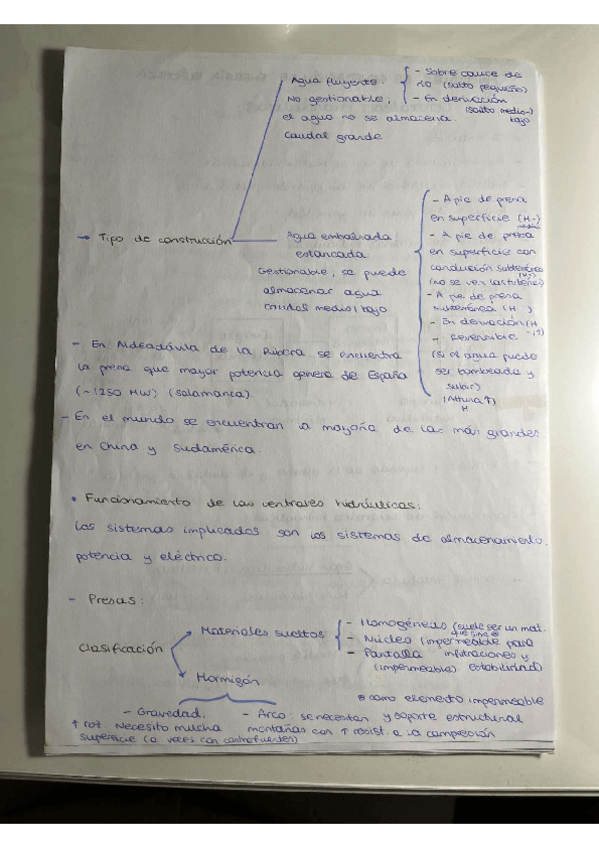 Agua fluyente.
No gestionable,
el agua no se almacena.
Caudal grande
- Sobre cauce de
río (salto pequeño)
- En derivación
(salto medio-)
bajo
→ Tipo de construcción
Agua embalsada
estancada.
Gestionable, se puede
almacenar agua
caudal medio/bajo
- A pie de presa
en superficie (H-)
- A pie de presa
en superficie con
conducción subterránea
(no se ven las tuberías)
- A pie de presa
subterránea (H )
- En derivación (H
- Reversible
(si el agua puede
ser bombeada y
subir)
(Altura ↑)
H
- En Aldeadávila de la Ribera se encuentra
la presa que mayor potencia genera de España
(~1250 MW) (Salamanca)
- En el mundo se encuentran la mayoría de las más grandes
en China y Sudamérica.
• Funcionamiento de las centrales hidráulicas:
Los sistemas implicados son los sistemas de almacenamiento,
potencia y eléctrico.
- Presas:
Clasificación
Materiales sueltos
- Homogéneas (suele ser un mat.
que sirve
- Núcleo (impermeable para
- Pantalla infiltraciones y
(impermeable) estabilidad)
Hormigón
como elemento impermeable
- Gravedad.
- Arco: se necesitan y soporte estructural
↑ rot. Necesito mucha montañas con ↑ resist. a la compresión
superficie (a veces con contrafuertes)